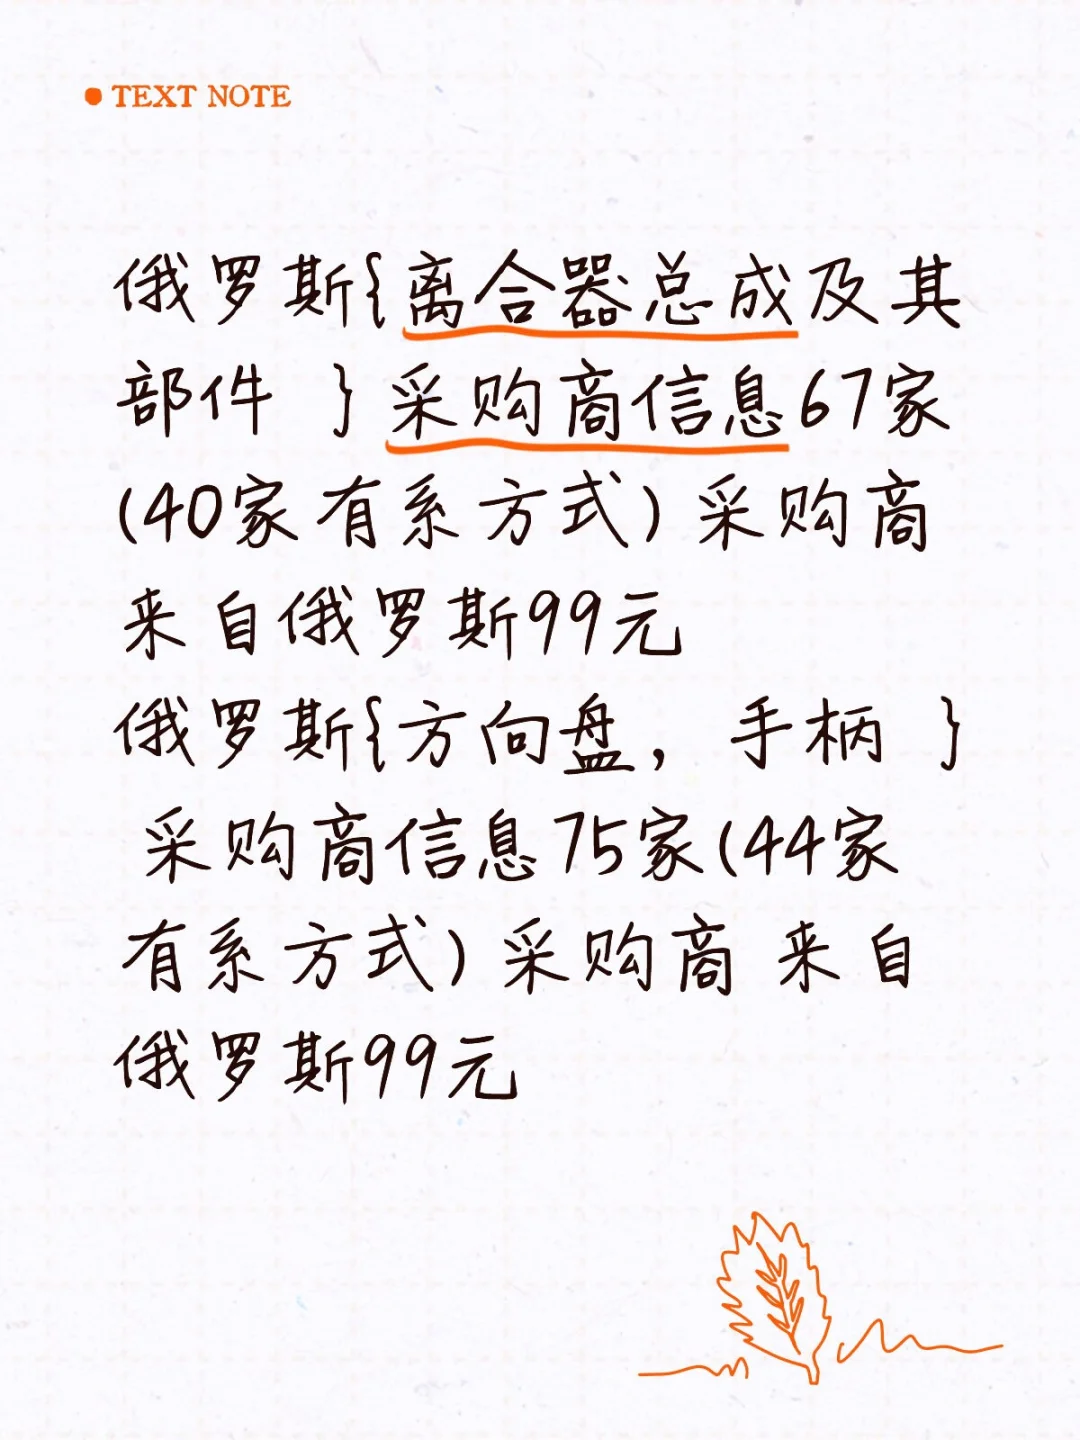 TEXT NOTE
俄罗斯{离合器总成及其
部件 }采购商信息67家
(40家有系方式)采购商
来自俄罗斯99元
俄罗斯{方向盘，手柄 }
采购商信息75家(44家
有系方式)采购商 来自
俄罗斯99元